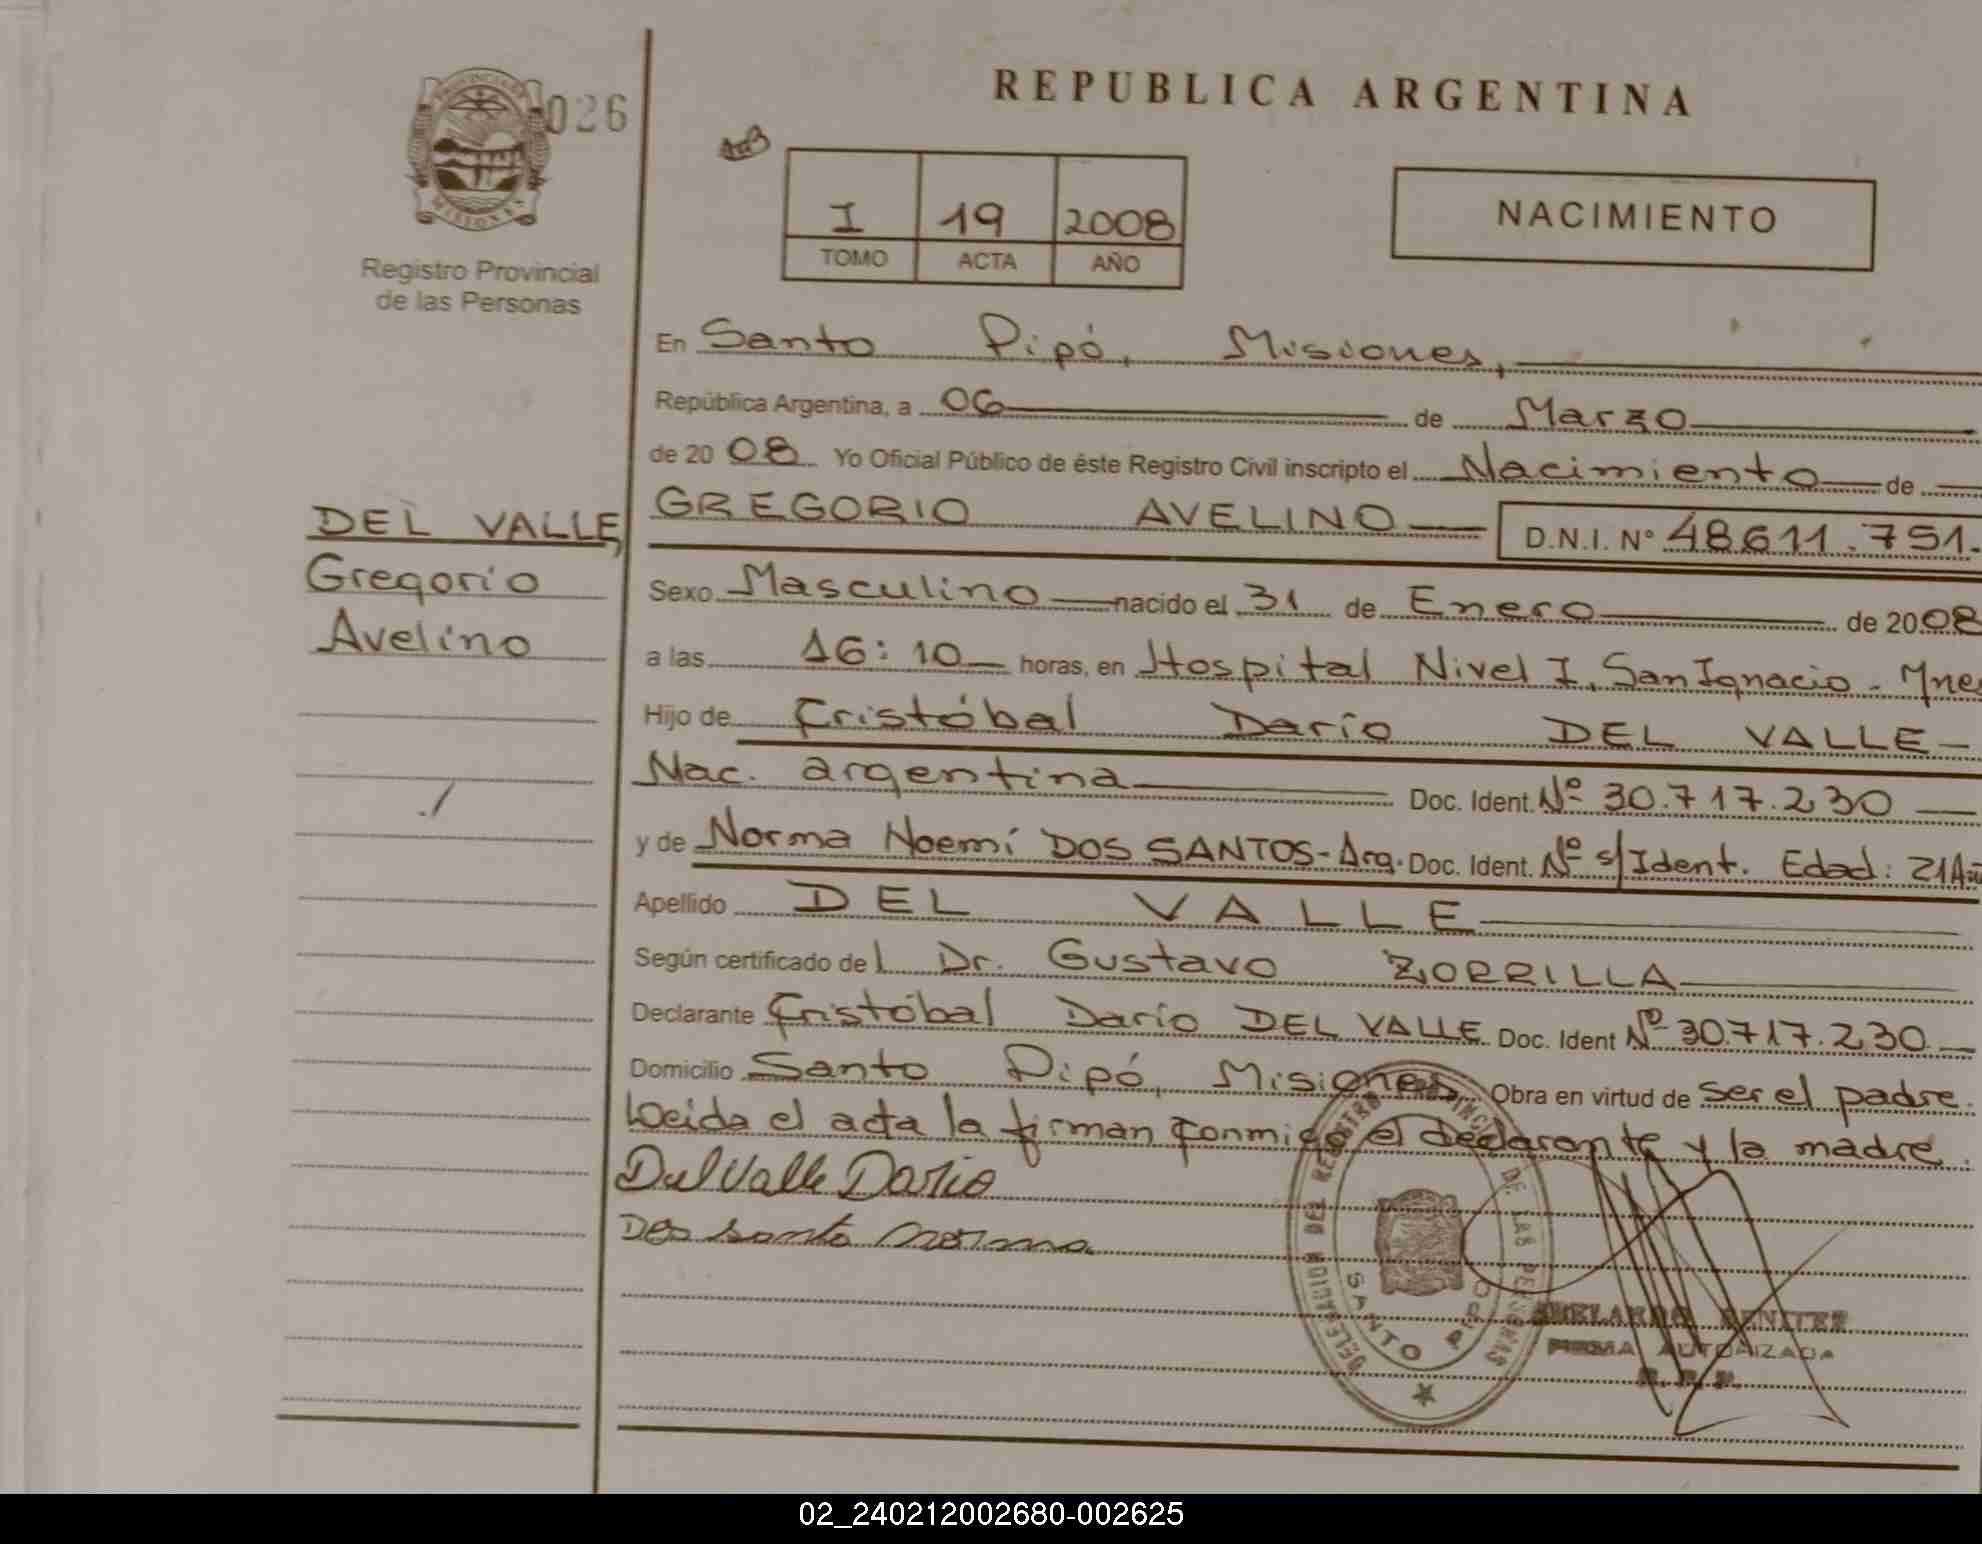 026
PROVINCIA DE
MISIONES
Registro Provincial
de las Personas
REPUBLICA ARGENTINA
I 19 2008
TOMO ACTA AÑO
NACIMIENTO
DEL VALLE,
Gregorio
Avelino
En Santo Pipó, Misiones,
República Argentina, a 06 de Marzo
de 2008 Yo Oficial Público de éste Registro Civil inscripto el Nacimiento de
GREGORIO AVELINO D.N.I. N° 48.611.751.
Sexo Masculino nacido el 31 de Enero de 2008
a las 16:10 horas, en Hospital Nivel I, San Ignacio - Mnes
Hijo de Cristóbal Darío DEL VALLE
Nac. argentina Doc. Ident. Nº 30.717.230
y de Norma Noemí DOS SANTOS - Arg. Doc. Ident. Nº s/Ident. Edad: 21
Apellido DEL VALLE
Según certificado del Dr. Gustavo ZORRILLA
Declarante Cristóbal Darío DEL VALLE Doc. Ident Nº 30.717.230
Domicilio Santo Pipó, Misiones Obra en virtud de ser el padre.
Leida el acta la firman conmigo el declarante y la madre.
Del Valle Dario
Dos santo norma
DELEGACION DEL REGISTRO PROVINCIAL DE LAS PERSONAS
SANTO PIPO
ABELARDO BENITEZ
FIRMA AUTORIZADA
R. P. P.
02_240212002680-002625